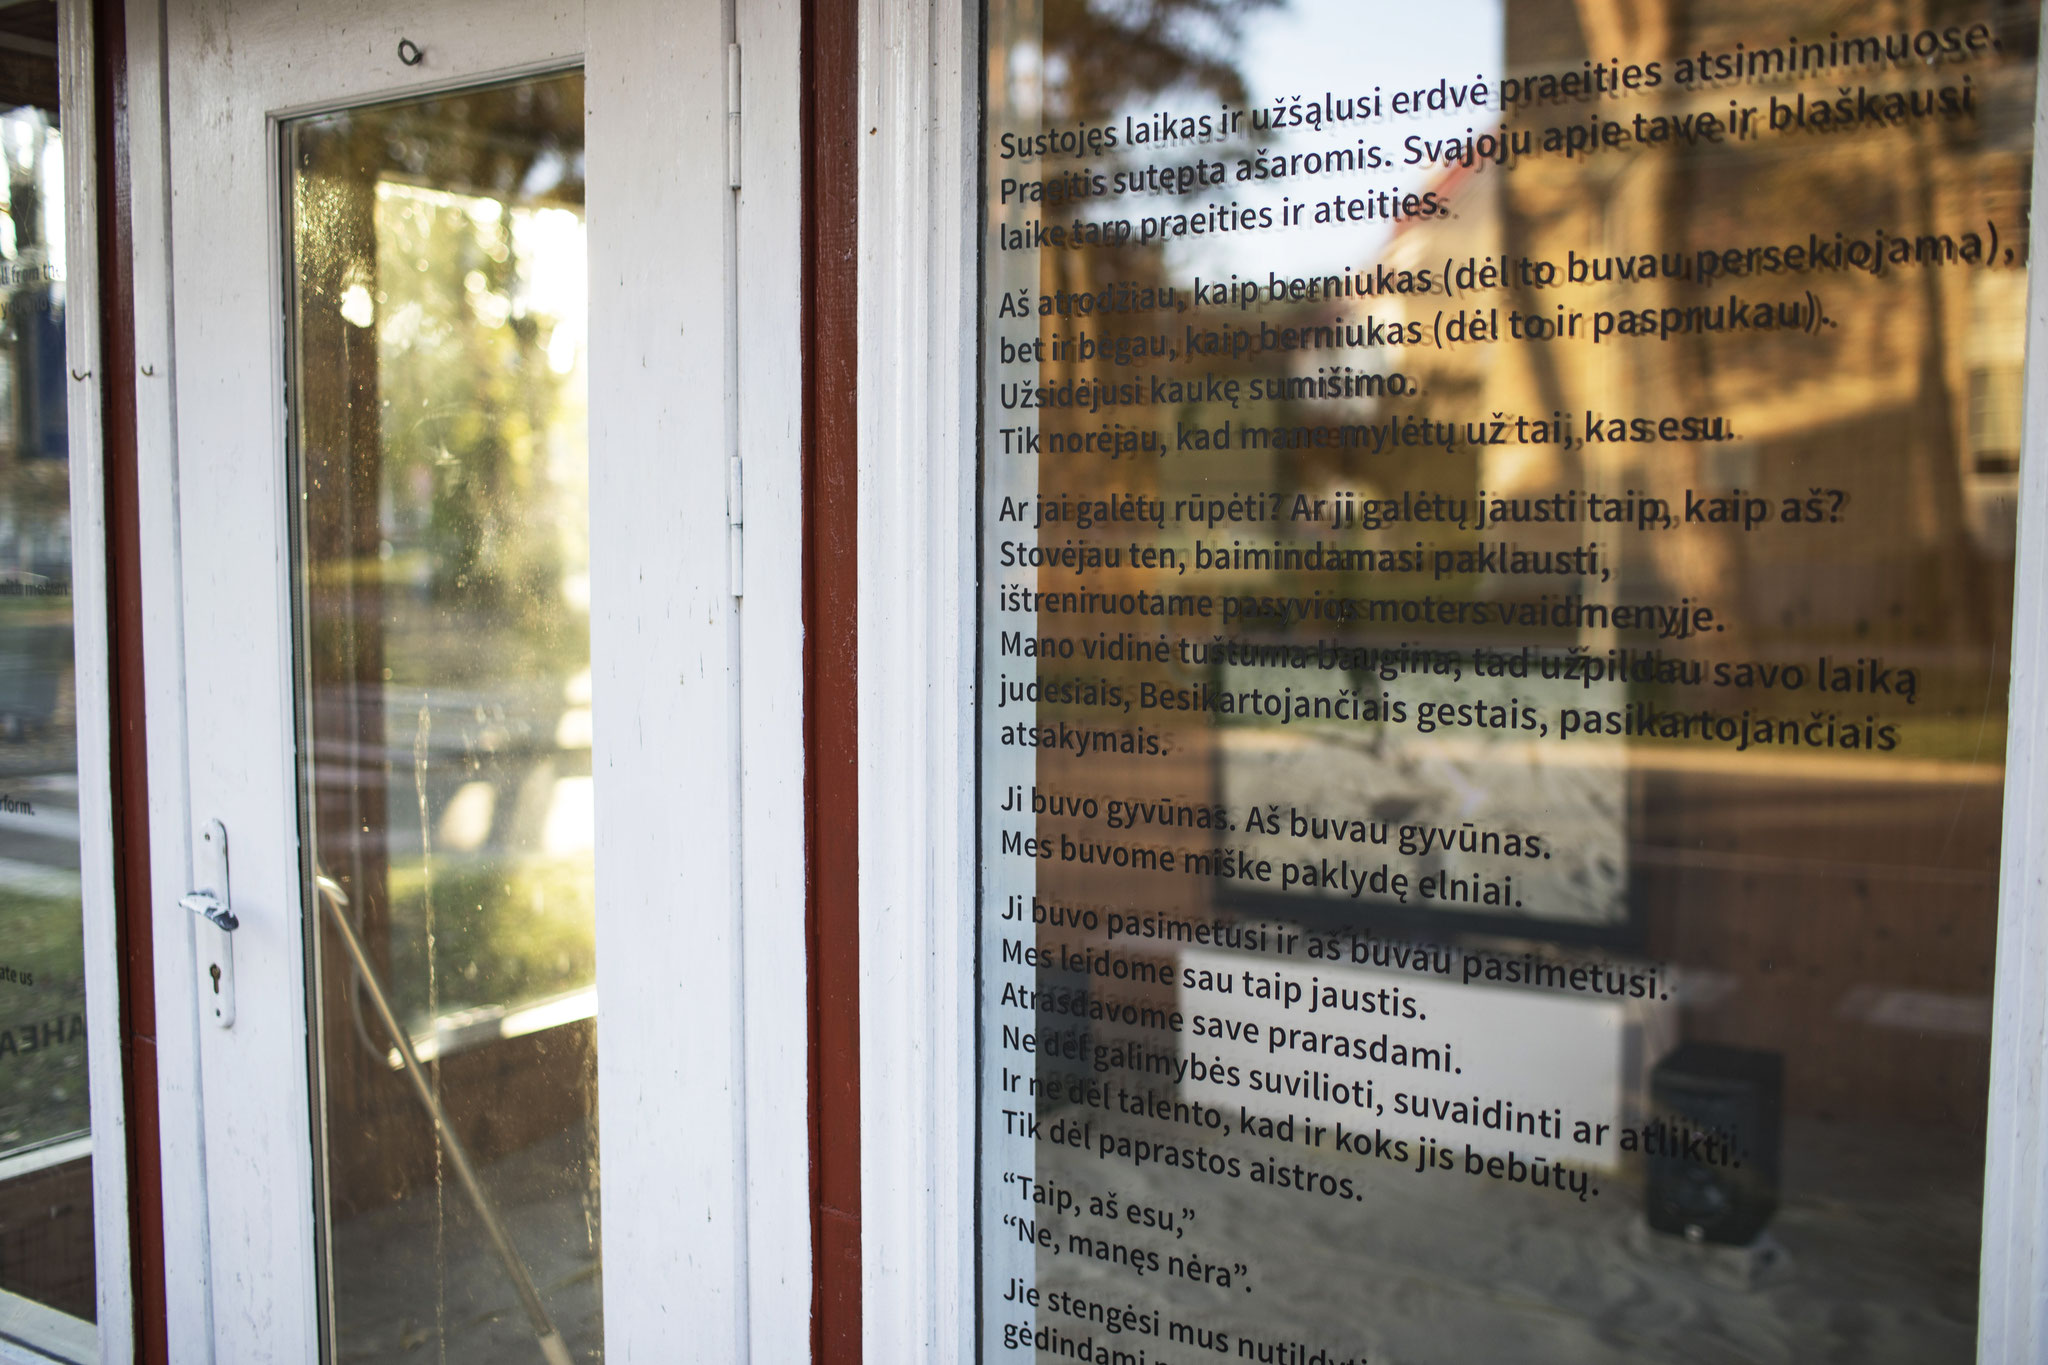 ll from th
with moth
rform.
ate us
AHEA
Sustojęs laikas ir užšąlusi erdvė praeities atsiminimuose.
Praeitis sutępta ašaromis. Svajoju apie tavę ir blaškausi
laike tarp praeities ir ateities.
Aš atrodžiau, kaip berniukas (dėl to buvau persekiojama),
bet ir bėgau, kaip berniukas (dėl to ir pasprukau).
Užsidėjusi kaukę sumišimo.
Tik norėjau, kad mane mylėtų už tai, kas esu.
Ar jai galėtų rūpėti? Ar ji galėtų jausti taip, kaip aš?
Stovėjau ten, baimindamasi paklausti,
ištreniruotame pasyvios moters vaidmenyje.
Mano vidinė tuštuma baugina, tad užpildau savo laiką
judesiais, Besikartojančiais gestais, pasikartojančiais
atsakymais.
Ji buvo gyvūnas. Aš buvau gyvūnas.
Mes buvome miške paklydę elniai.
Ji buvo pasimetusi ir aš buvau pasimetusi.
Mes leidome sau taip jaustis.
Atrasdavome save prarasdami.
Ne dėl galimybės suvilioti, suvaidinti ar atlikti.
Ir ne dėl talento, kad ir koks jis bebūtų.
Tik dėl paprastos aistros.
“Taip, aš esu,”
“Ne, manęs nėra”.
Jie stengėsi mus nutildyti
gėdindami